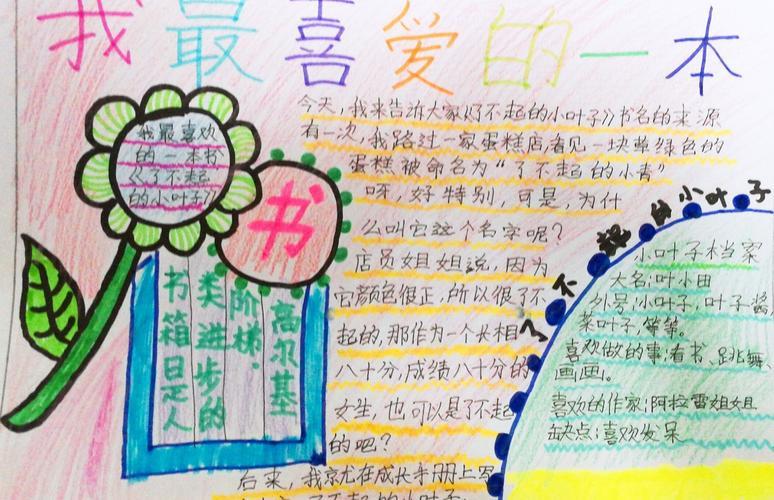 我最喜爱的一本
书
我最喜欢
的一本书
《了不起
的小叶子》
高尔基
阶梯.
类进步的
书箱日定人
今天,我来告诉大家《了不起的小叶子》书名的来源
有一次,我路过一家蛋糕店看见一块草绿色的
蛋糕被命名为“了不起的小青”
呀,好特别,可是,为什
么叫它这个名字呢?
店员姐姐说,因为
它颜色很正,所以很了不
起的,那作为一个长相
八十分,成绩八十分的
女生,也可以是了不起
的吧?
后来,我就在成长手册上写
了不起的小叶子
小叶子档案
大名:叶小田
外号:小叶子,叶子酱
菜叶子,等等。
喜欢做的事:看书、跳舞、
画画。
喜欢的作家:阿拉雷姐姐
缺点:喜欢发呆